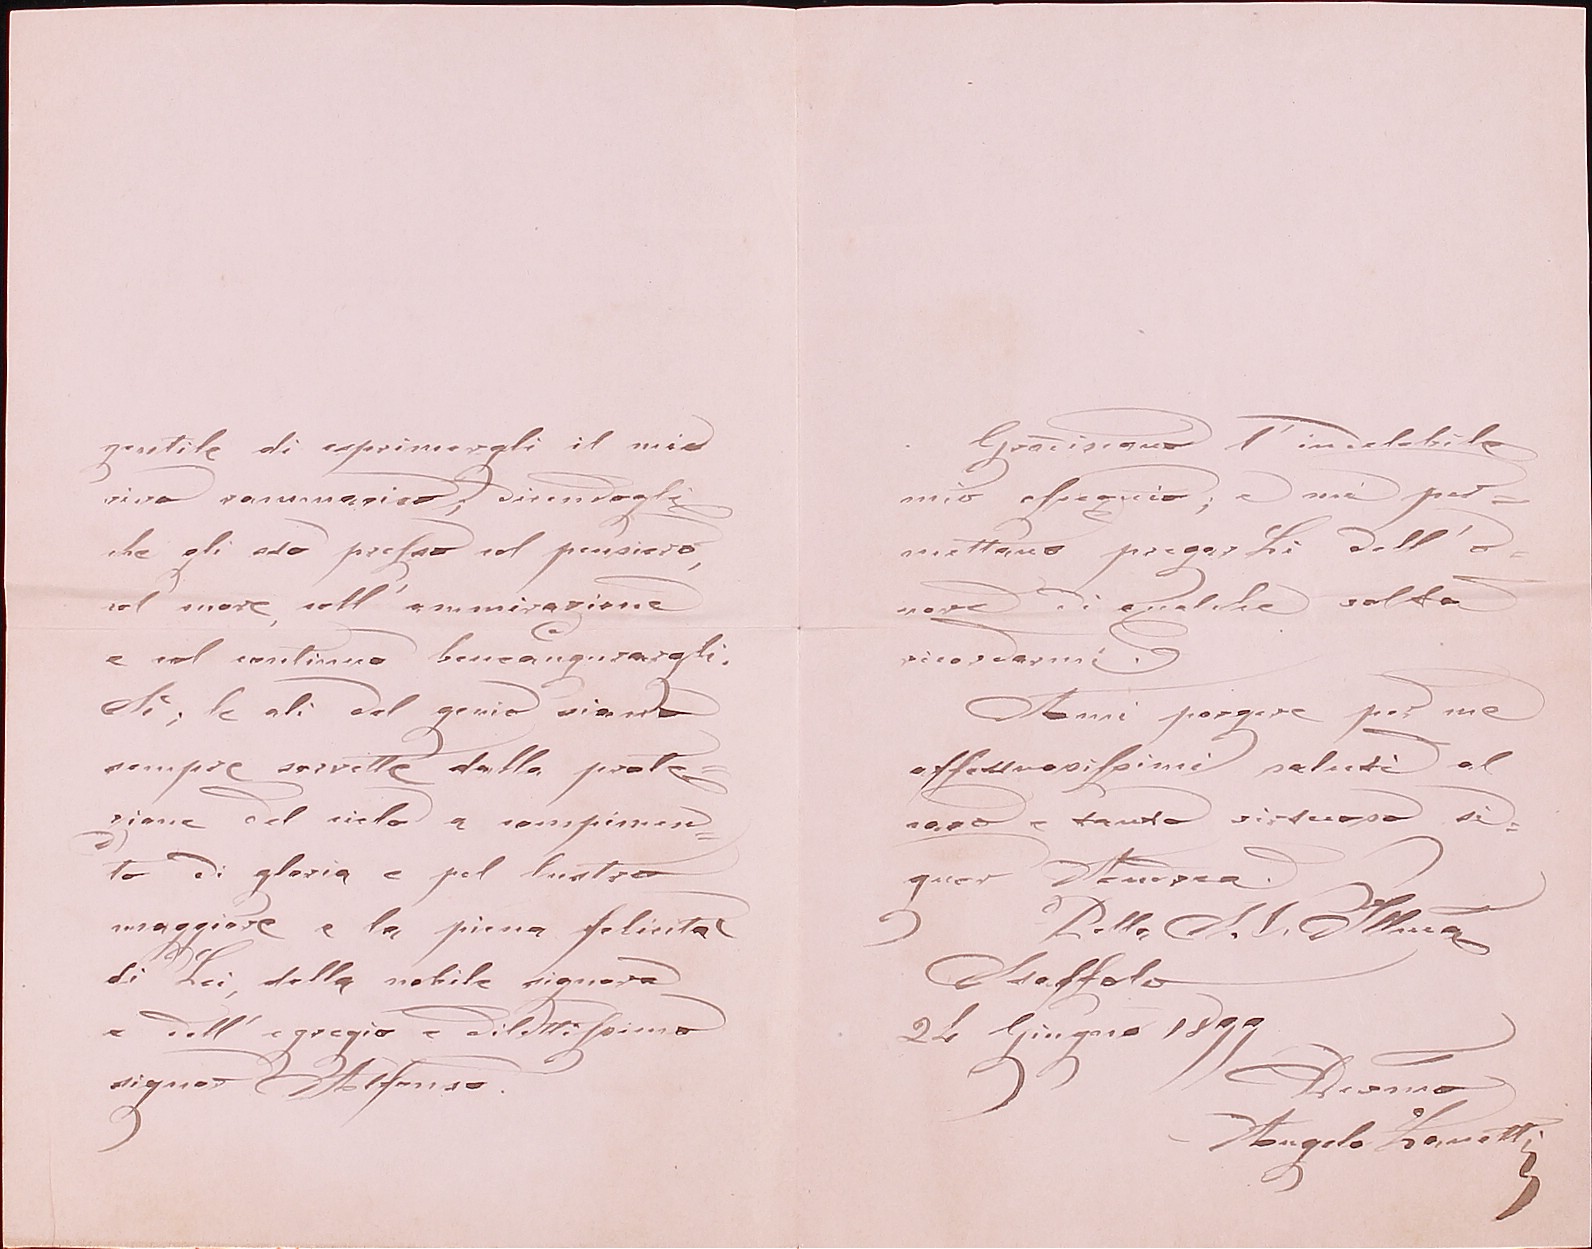 gentile di esprimergli il mio
vivo rammarico, dicendogli
che gli sto presso col pensiero,
col cuore, coll'ammirazione
e col continuo beneaugurargli.
Sì, le ali del genio siano
sempre sorrette dalla prote=
zione del cielo a compimen=
to di gloria e pel lustro
maggiore e la piena felicità
di Lei, della nobile signora
e dell'egregio e dilettissimo
signor Alfonso.
Gradiscano l'indelebile
mio ossequio; e mi per=
mettano pregarLi dell'o=
nore di qualche volta
ricordarmi.
Ami porgere per me
affettuosissimi saluti al
caro e tanto virtuoso si=
gnor Andrea.
Della S. V. Illma
Staffolo
24 Giugno 1899
Devmo
Angelo Zanetti